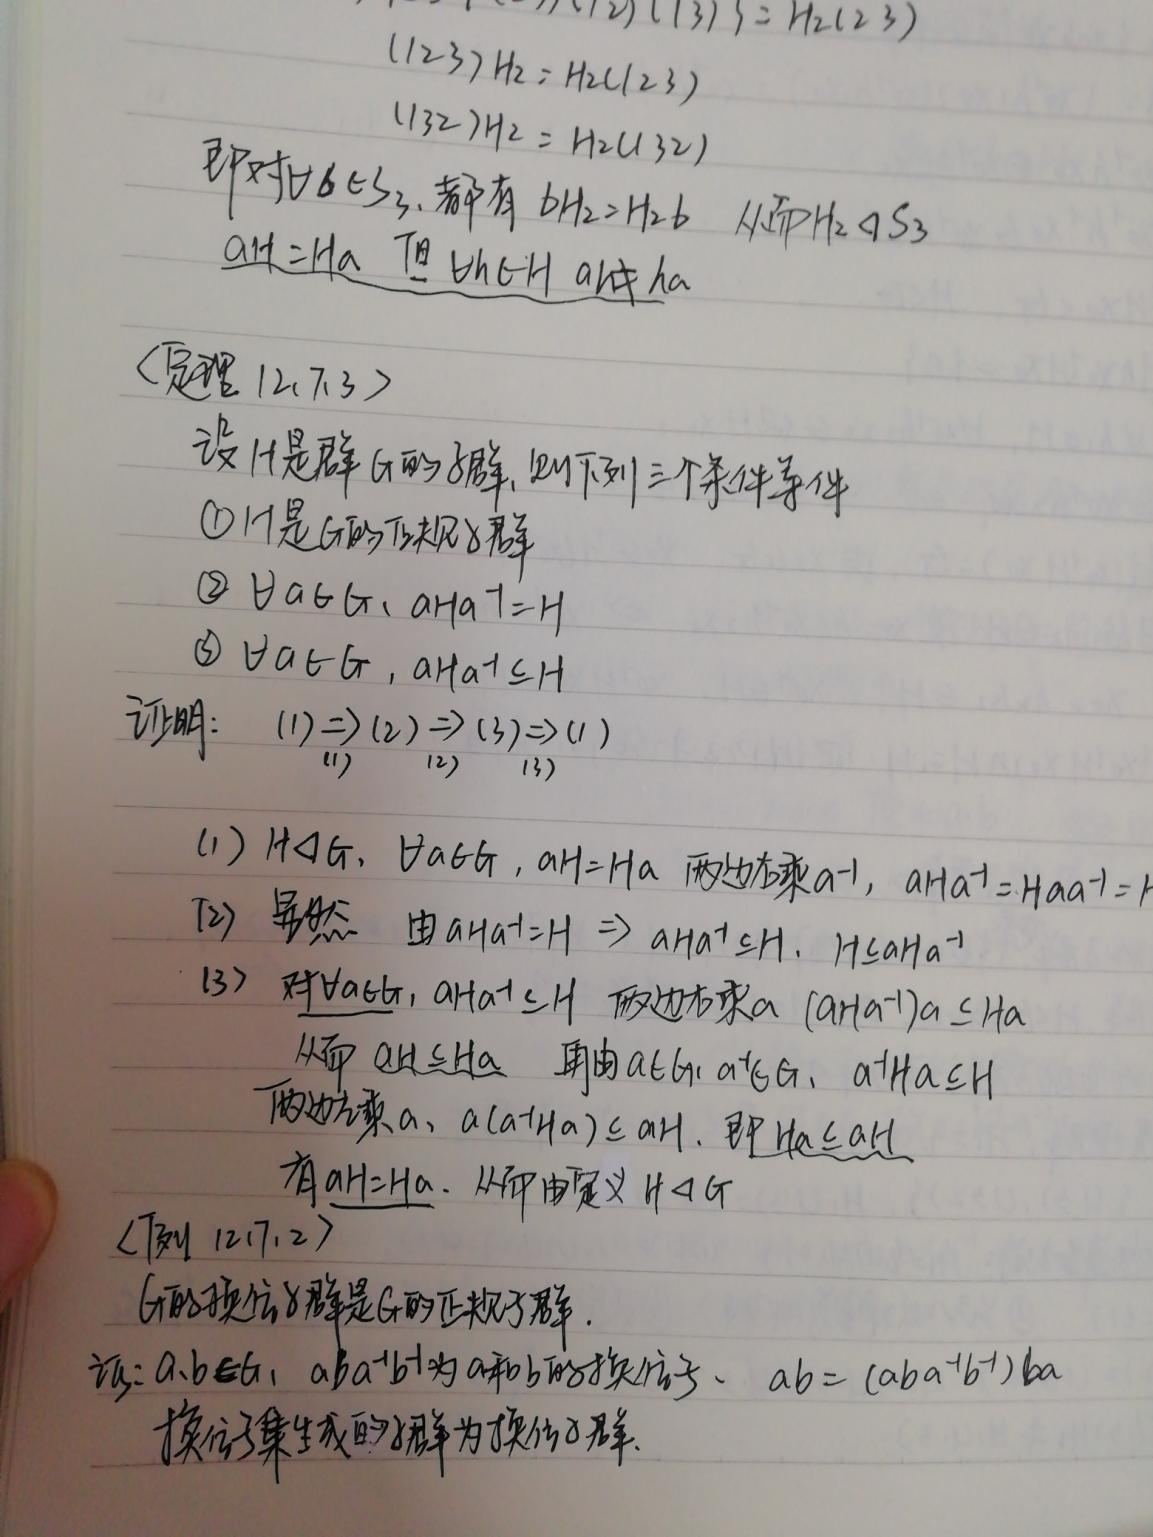 (12)(13)}=H₂(23)
(123)H₂=H₂(123)
(132)H₂=H₂(132)
即对∀6∈S₃,都有 6H₂=H₂6 从而H₂◁S₃
aH=Ha 但∀h∈H ah≠ha
<定理 12.7.3>
设H是群G的子群,则下列三个条件等价
①H是G的正规子群
②∀a∈G, aHa⁻¹=H
③∀a∈G, aHa⁻¹⊆H
证明: (1)⇒(2)⇒(3)⇒(1)
(1) (2) (3)
(1) H◁G, ∀a∈G, aH=Ha 两边右乘a⁻¹, aHa⁻¹=Haa⁻¹=H
(2) 显然 由aHa⁻¹=H ⇒ aHa⁻¹⊆H, H⊆aHa⁻¹
(3) 对∀a∈G, aHa⁻¹⊆H 两边右乘a (aHa⁻¹)a⊆Ha
从而 aH⊆Ha 再由a∈G, a⁻¹∈G, a⁻¹Ha⊆H
两边左乘a, a(a⁻¹Ha)⊆aH, 即Ha⊆aH
有aH=Ha, 从而由定义 H◁G
<例 12.7.2>
G的换位子群是G的正规子群.
证: a,b∈G, aba⁻¹b⁻¹为a和b的换位子, ab=(aba⁻¹b⁻¹)ba
换位子集生成的子群为换位子群.